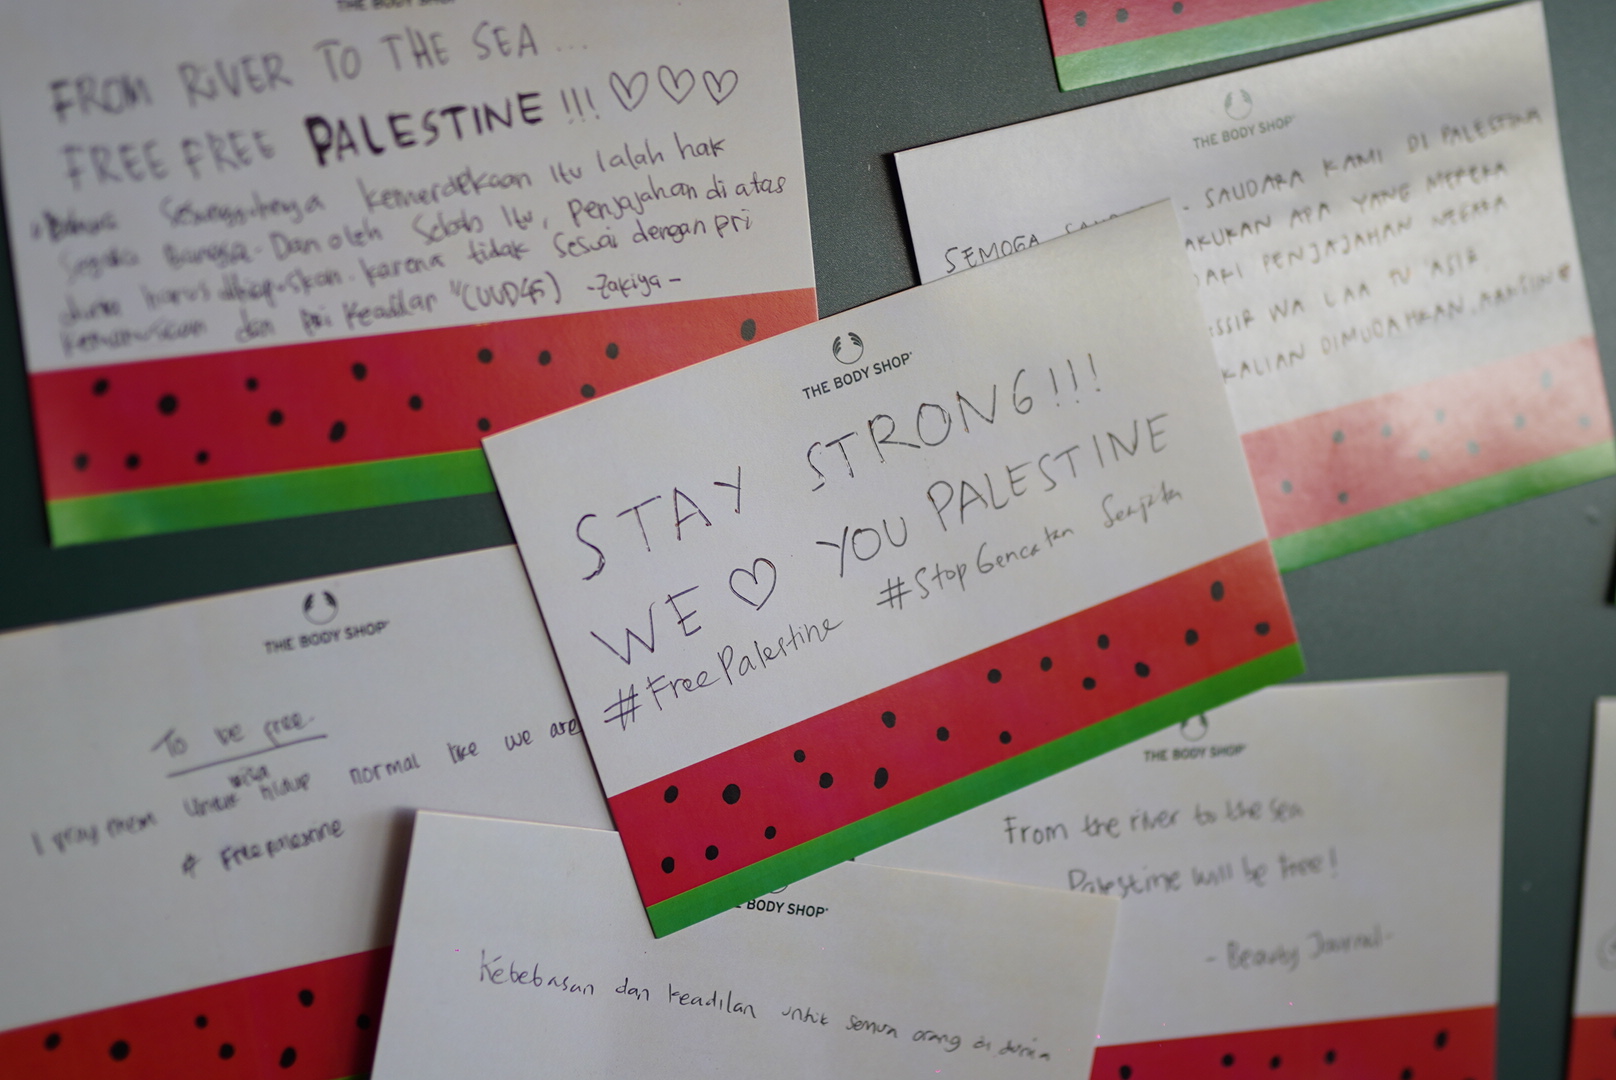 THE BODY SHOP
FROM RIVER TO THE SEA ...
FREE FREE PALESTINE !!!
Sesungguhnya kemerdekaan Itu Ialah hak
Segala Bangsa. Dan oleh Sebab Itu, Penjajahan di atas
dunia harus dihapuskan. karena tidak Sesuai dengan pri
kemanusiaan dan Pri Keadilan "(UUD45) -Zakiya-
THE BODY SHOP
SEMOGA SAUDARA KAMI DI PALESTINA
AKUKAN APA YANG MEREKA
DARI PENJAJAHAN NEGARA
SSIR WA LAA TU'ASIR
KALIAN DIMUDAHKAN. AAMIIN
THE BODY SHOP
STAY STRONG!!!
WE YOU PALESTINE
#FreePalestine #StopGencatan Senjata
THE BODY SHOP
To be free
I pray them Untuk bisa hidup normal like we are
# Freepalestine
THE BODY SHOP
From the river to the sea
Palestine will be free!
- Beauty Journal-
BODY SHOP
Kebebasan dan keadilan untuk semua orang di dunia